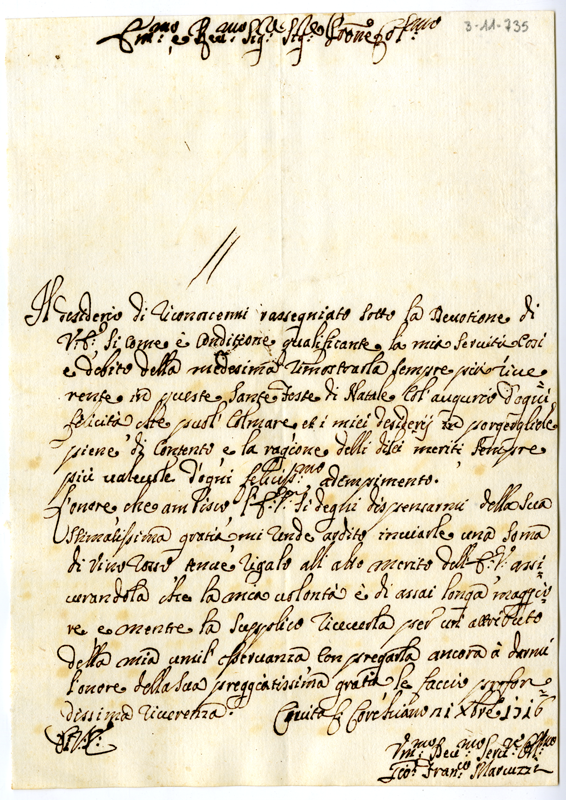 3-11-735
Em:mo e Rev:mo Sig:r Sig:r Pron'e Col:mo
Il desiderio di riconocermi rassegniato sotto la Devotione di
V:E: si come è conditione qualificante la mia servitù così
è debito della medesima rimostrarla sempre più rive
rente in queste Sante Feste di Natale col augurio d'ogni
felicità che può colmare et i miei desiderij in porgergliele
piene di contento e la ragione delli di lei meriti sempre
più valevole d'ogni feliciss:mo adempimento.
L'onore che ambisco V:E: si degni dispensarmi della Sua
Stimatissima gratia, mi rende ardito inviarle una soma
di vino rosso tenue regalo all alto merito dell E:V: assi
curandola che la mia volontà è di assai longa maggio
re e mentre la supplico riceverla per un attributo
della mia umil osservanza con pregarla ancora à darmi
l'onore della Sua preggiatissima gratia le faccio profon
dissima riverenza. Civita 21 Xbre 1716
D:V:E:
Um:mo Dev:mo Serv:re
Gio: Fran:co Marcuzzi